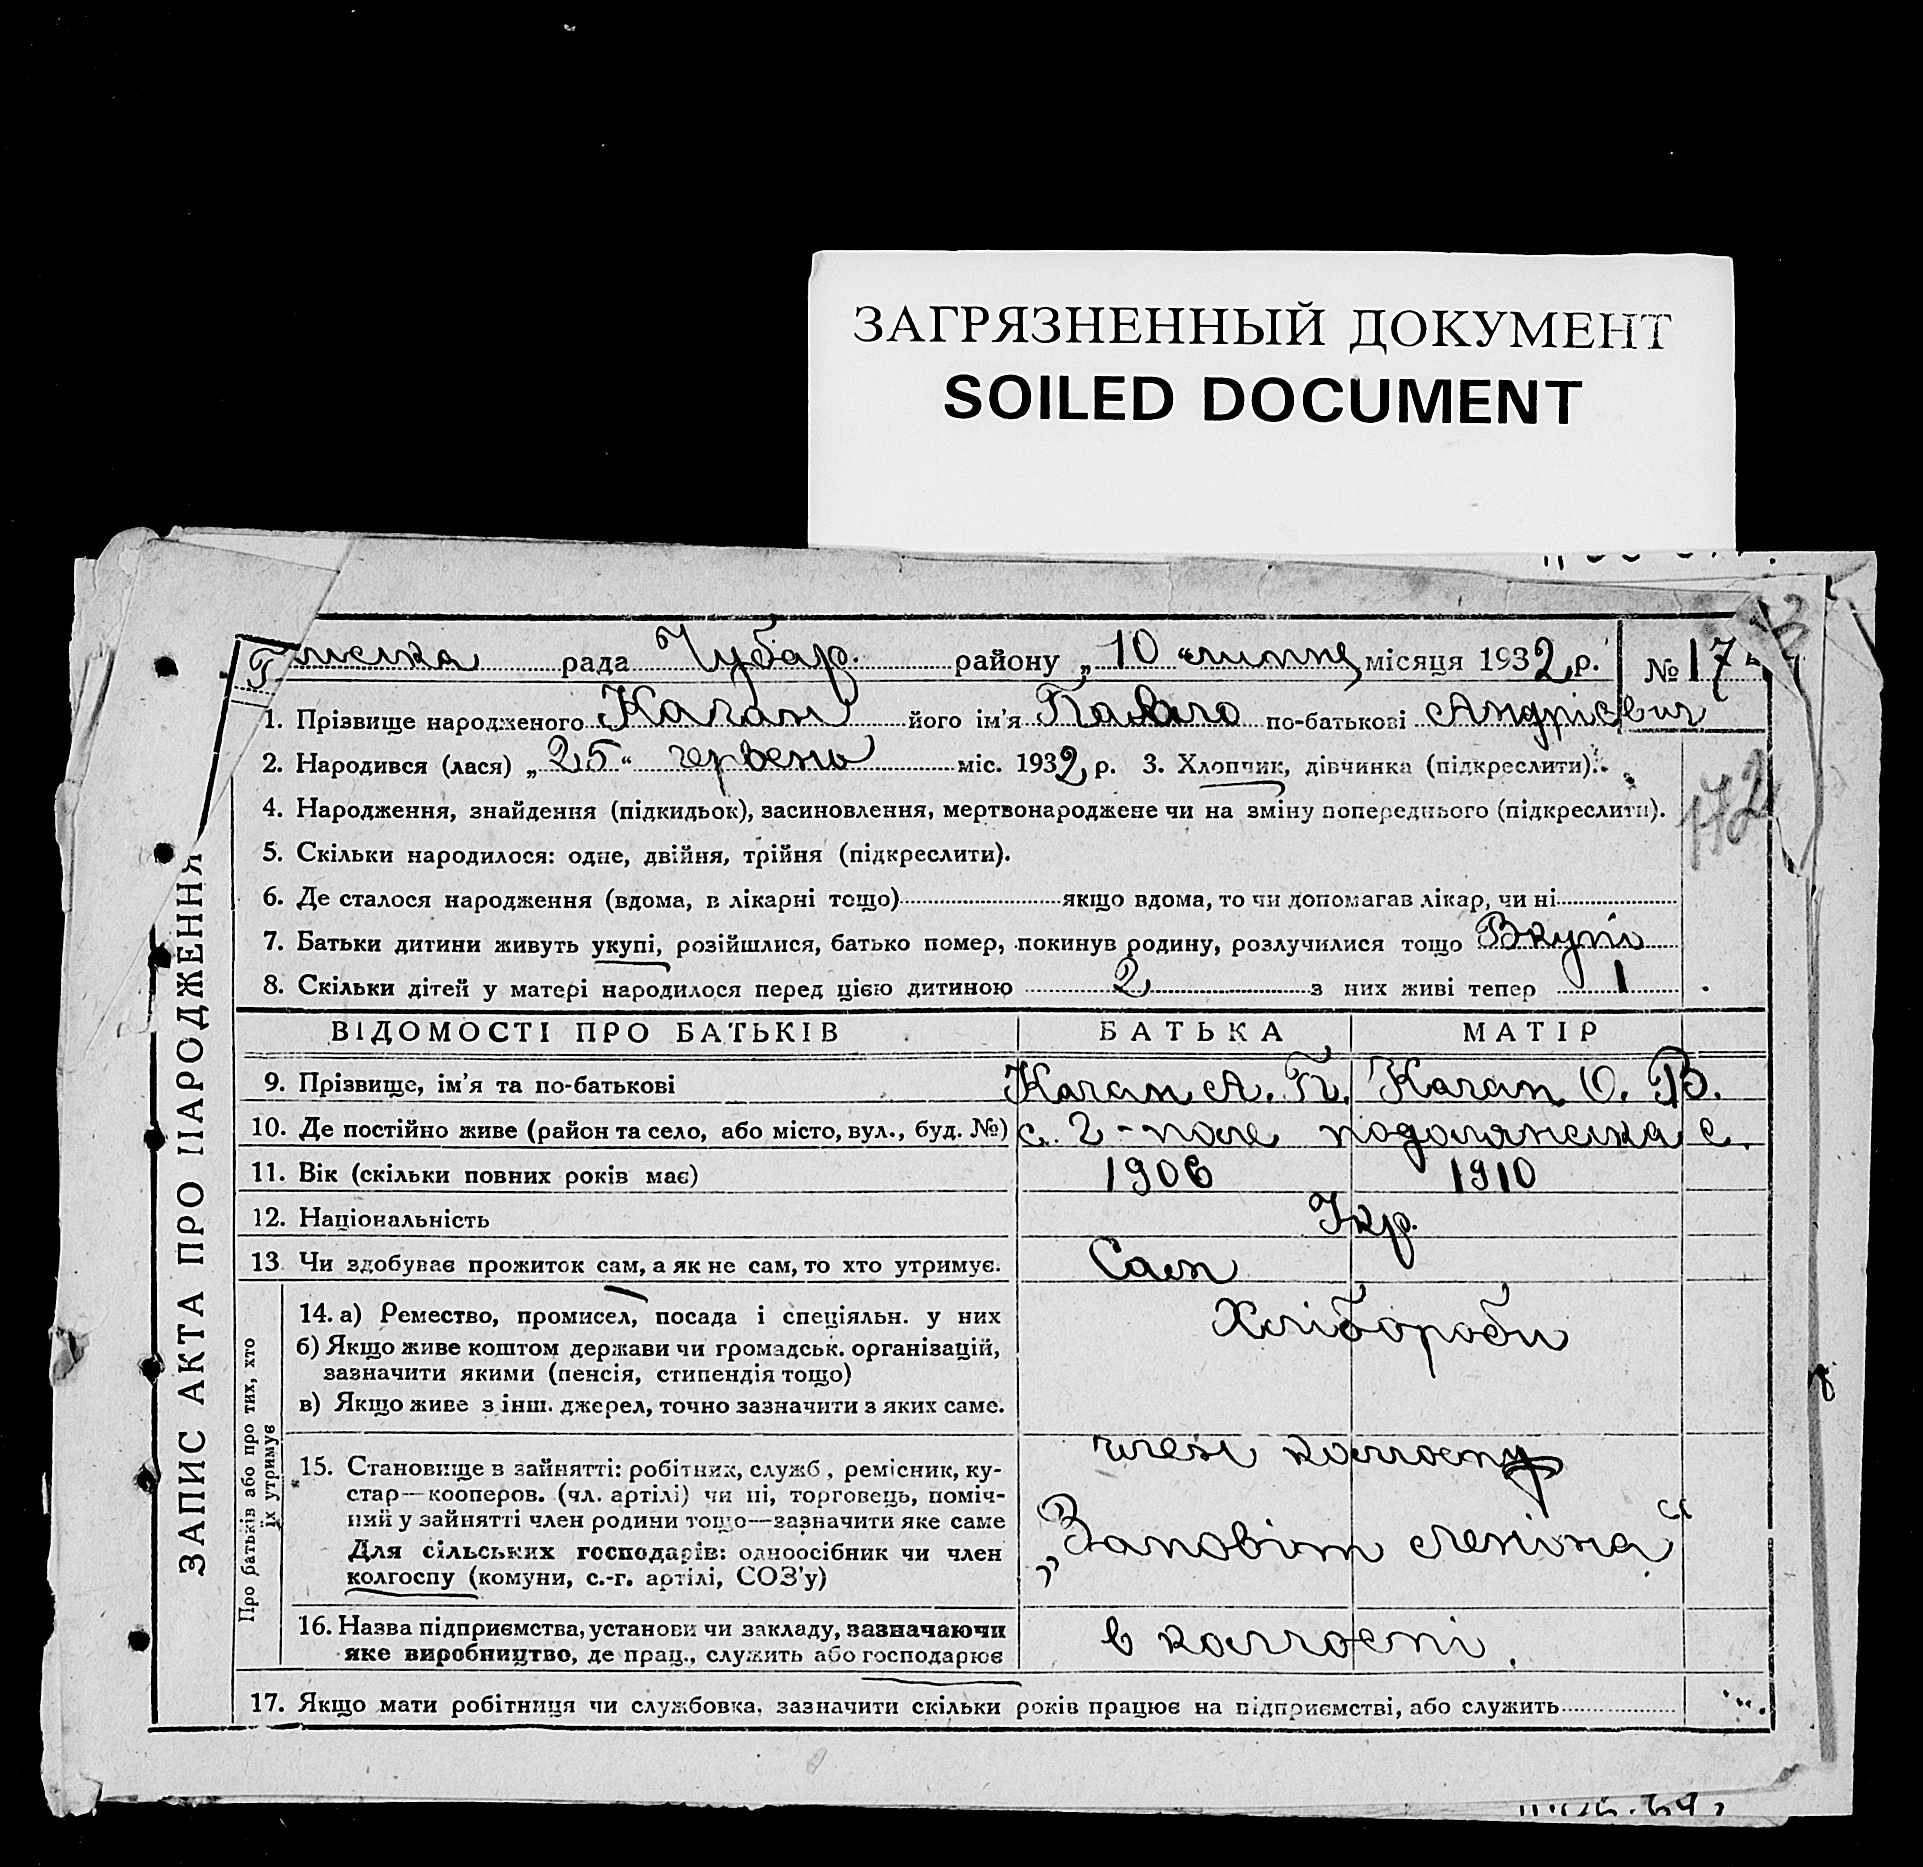 ЗАГРЯЗНЕННЫЙ ДОКУМЕНТ
SOILED DOCUMENT
рада Чубар. району „10“ липня місяця 1932 р. № 17
1. Прізвище народженого Качан його ім'я Павло по-батькові Андрієвич
2. Народився (лася) „25“ червень міс. 1932 р. 3. Хлопчик, дівчинка (підкреслити).
172
4. Народження, знайдення (підкидьок), засиновлення, мертвонароджене чи на зміну попереднього (підкреслити).
5. Скільки народилося: одне, двійня, трійня (підкреслити).
6. Де сталося народження (вдома, в лікарні тощо) якщо вдома, то чи допомагав лікар, чи ні
7. Батьки дитини живуть укупі, розійшлися, батько помер, покинув родину, розлучилися тощо Вкупі
8. Скільки дітей у матері народилося перед цією дитиною 2 з них живі тепер 1
ВІДОМОСТІ ПРО БАТЬКІВ БАТЬКА МАТІР
9. Прізвище, ім'я та по-батькові Качан А. П. Качан О. В.
10. Де постійно живе (район та село, або місто, вул., буд. №) с. Г-поле подолянська с.
11. Вік (скільки повних років має) 1906 1910
12. Національність Укр.
13 Чи здобуває прожиток сам, а як не сам, то хто утримує. Сам
14. а) Ремество, промисел, посада і спеціяльн. у них Хлібороби
б) Якщо живе коштом держави чи громадськ. організацій,
зазначити якими (пенсія, стипендія тощо)
в) Якщо живе з інш. джерел, точно зазначити з яких саме.
член колгоспу
15. Становище в зайнятті: робітник, служб, ремісник, ку-
стар—кооперов. (чл. артілі) чи ні, торговець, поміч-
ний у зайнятті член родини тощо—зазначити яке саме
„Заповіт Леніна“
Для сільських господарів: одноосібник чи член
колгоспу (комуни, с.-г. артілі, СОЗ'у)
16. Назва підприємства, установи чи закладу, зазначаючи
яке виробництво, де прац., служить або господарює в колгоспі.
17. Якщо мати робітниця чи службовка, зазначити скільки років працює на підприємстві, або служить
ЗАПИС АКТА ПРО НАРОДЖЕННЯ
Про батьків або про тих, хто
їх утримує